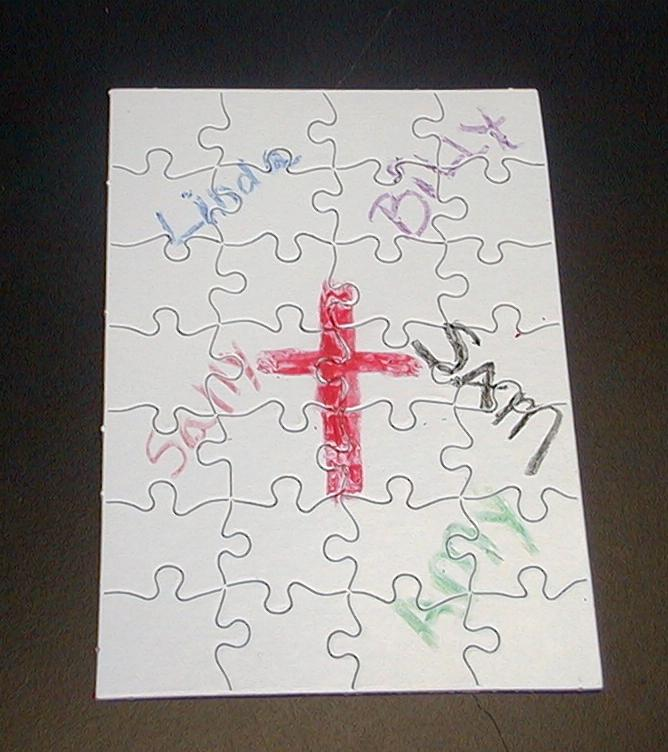 Linda
Billy
Sally
SAM
Amy